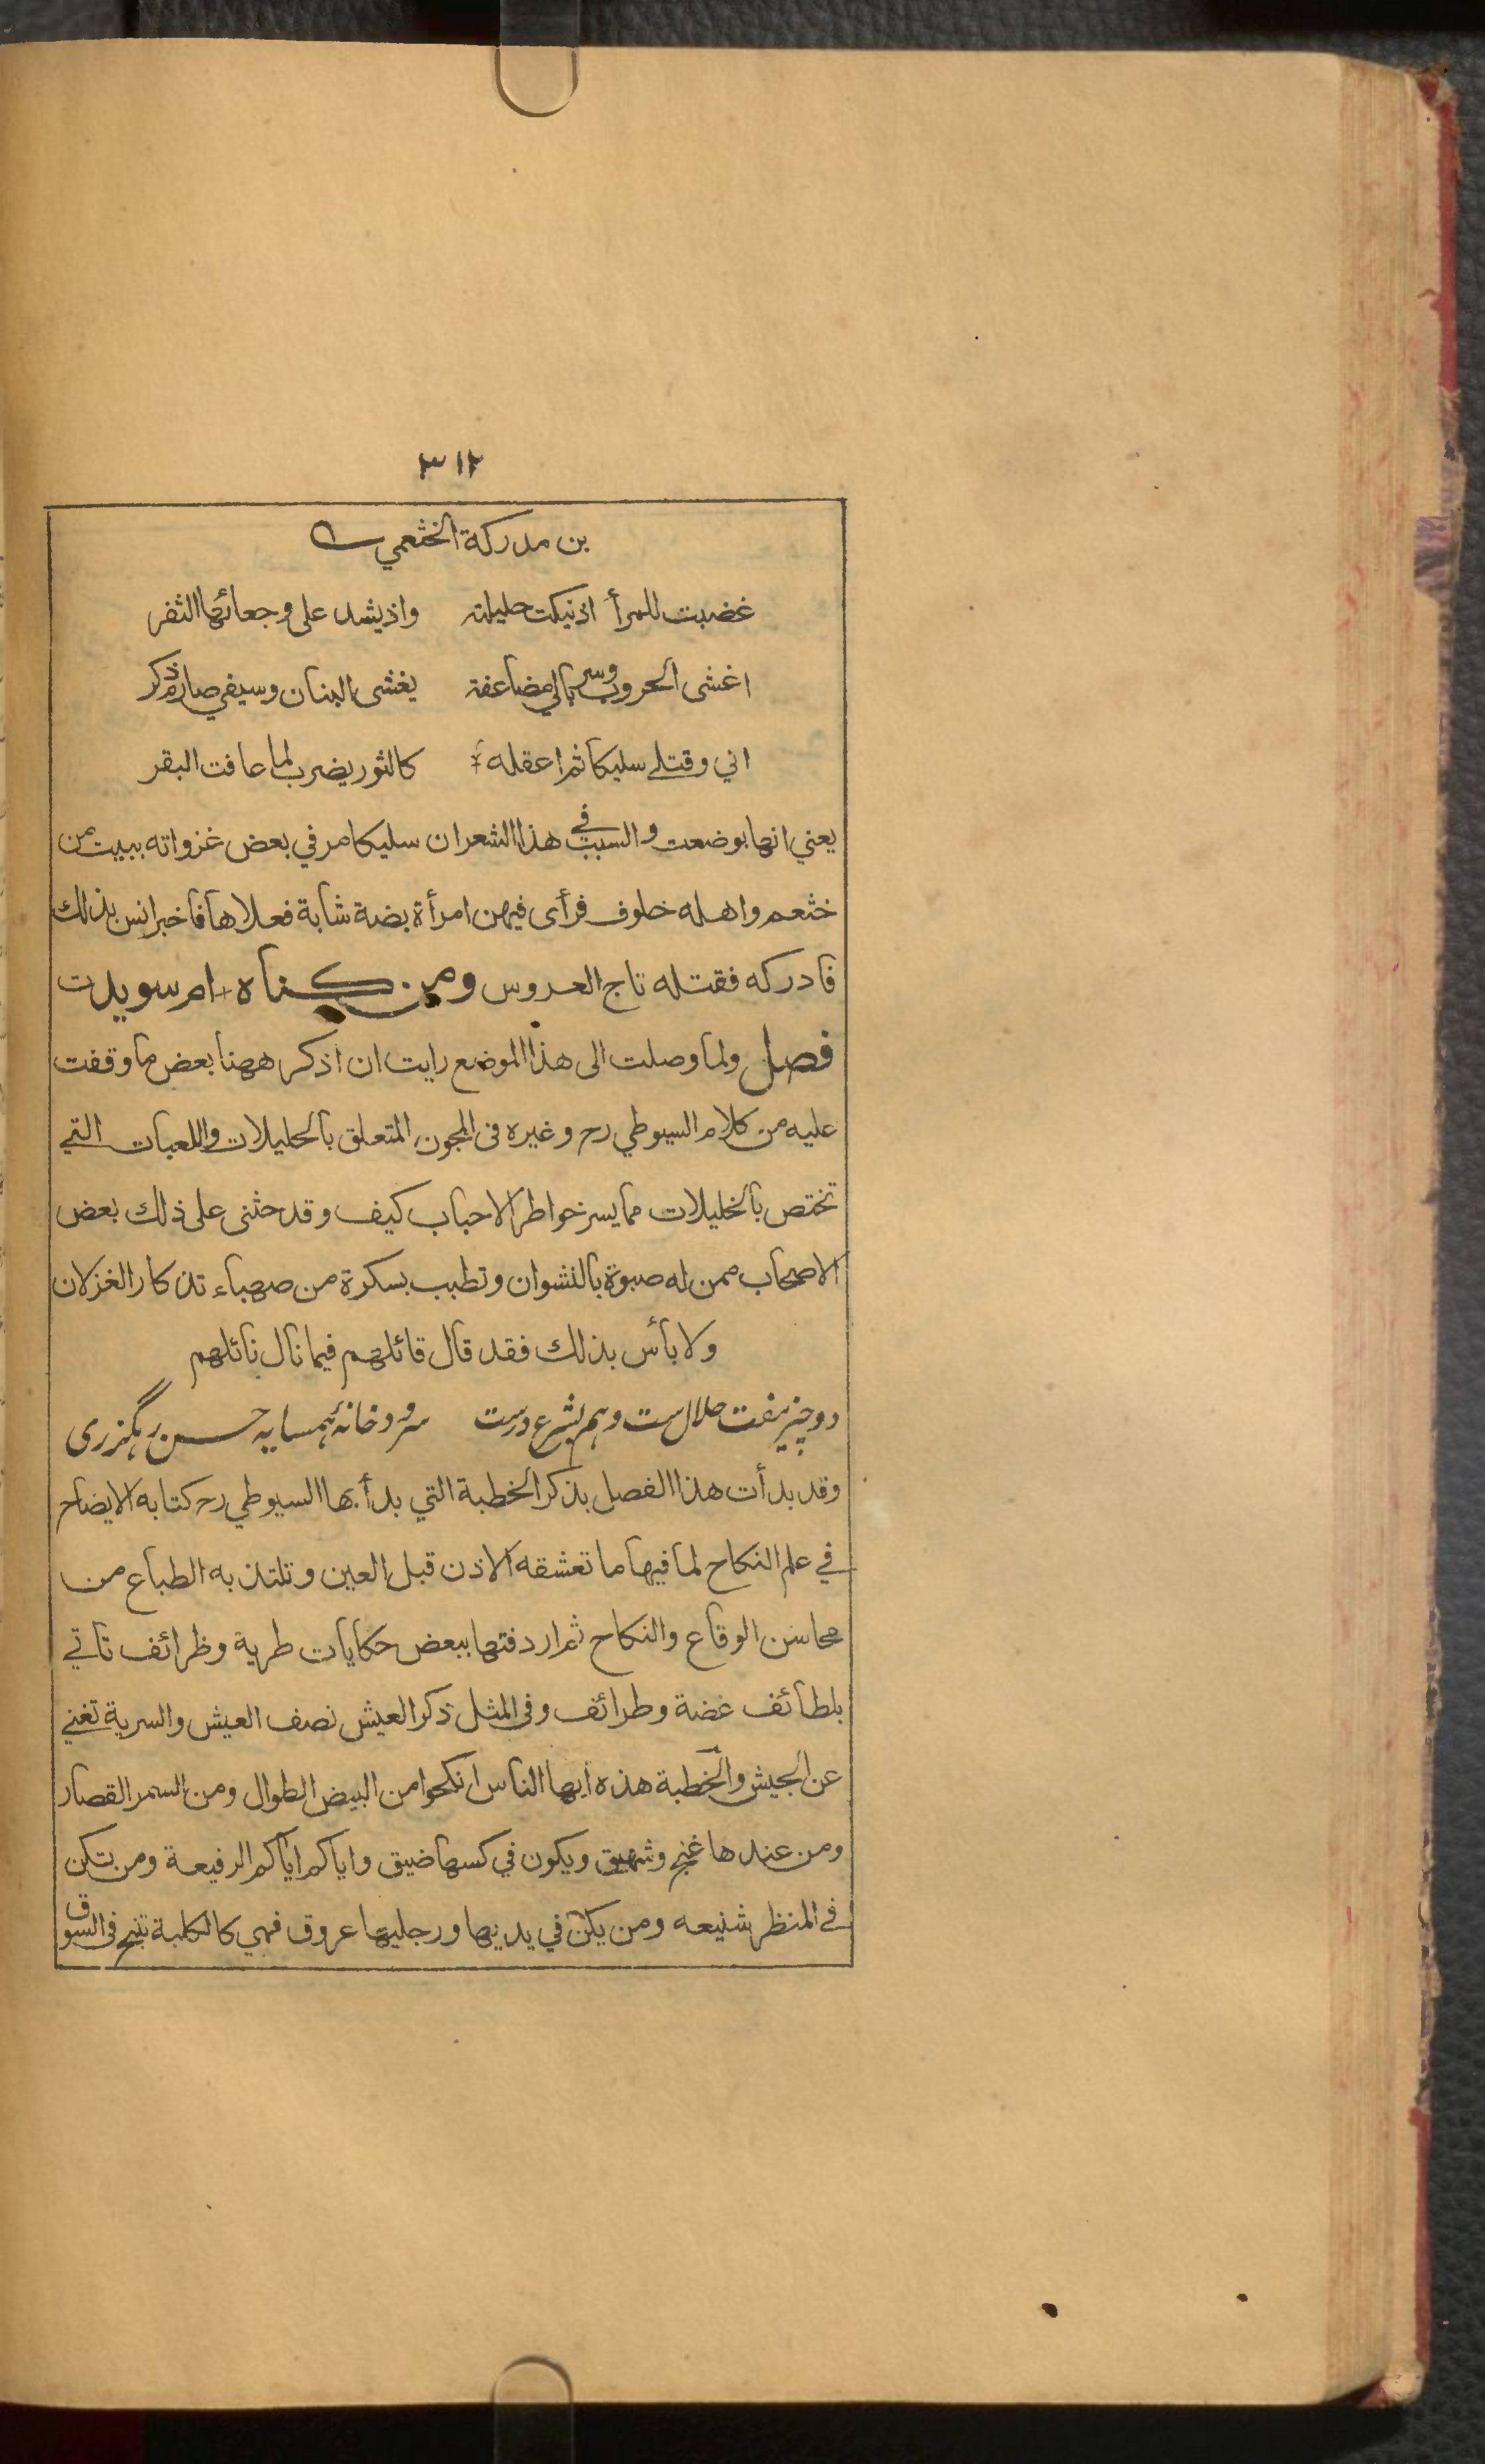 ٣١٢
بن مدركة الخثعمي
غضبت للمرأ اذ نيكت حليلته واذ يشد على وجعائها الثفر
اغشى الحروب وسربالي مضاعفة يغشى البنان وسيفي صارم ذكر
اني وقتلي سليكا ثم اعقله كالثور يضرب لما عافت البقر
يعني انها بوضعت والسبب في هذا الشعر ان سليكا مر في بعض غزواته ببيت من
خثعم واهله خلوف فرأى فيهن امرأة بضة شابة فعلاها فاخبر انس بذلك
فادركه فقتله تاج العروس ومن كناه ام سويدت
فصل ولما وصلت الى هذا الموضع رايت ان اذكر ههنا بعض ما وقفت
عليه من كلام السيوطي رح وغيره في المجون المتعلق بالحليلات واللعبات التي
تختص بالخليلات مما يسر خواطر الاحباب كيف وقد حثنى على ذلك بعض
الاصحاب ممن له صبوة بالنشوان وتطبب بسكرة من صهباء تذكار الغزلان
ولا بأس بذلك فقد قال قائلهم فيما نال نائلهم
دو چیز مفت حلال ست وهم بشرع درست سرود خانۂ همسایه حسن رهگزری
وقد بدأت هذا الفصل بذكر الخطبة التي بدأ بها السيوطي رح كتابه الايضاح
في علم النكاح لما فيها ما تعشقه الاذن قبل العين وتلتذ به الطباع من
محاسن الوقاع والنكاح ثم اردفتها ببعض حكايات طرية وظرائف تاتي
بلطائف غضة وطرائف وفي المثل ذكر العيش نصف العيش والسرية تغني
عن الجيش والخطبة هذه أيها الناس انكحوا من البيض الطوال ومن السمر القصار
ومن عندها غنج وشهيق ويكون في كسها ضيق واياكم اياكم الرفيعة ومن تكن
في المنظر شنيعه ومن يكن في يديها ورجليها عروق فهي كالكلبة تنبح في السوق